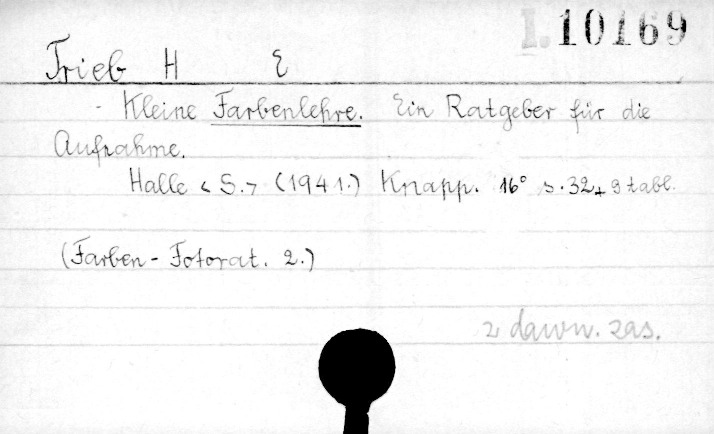 I.10169
Trieb H E
- Kleine Farbenlehre. Ein Ratgeber für die
Aufnahme.
Halle <S.> (1941.) Knapp. 16° s. 32 + 9 tabl.
(Farben-Fotorat. 2.)
z dawn. zas.